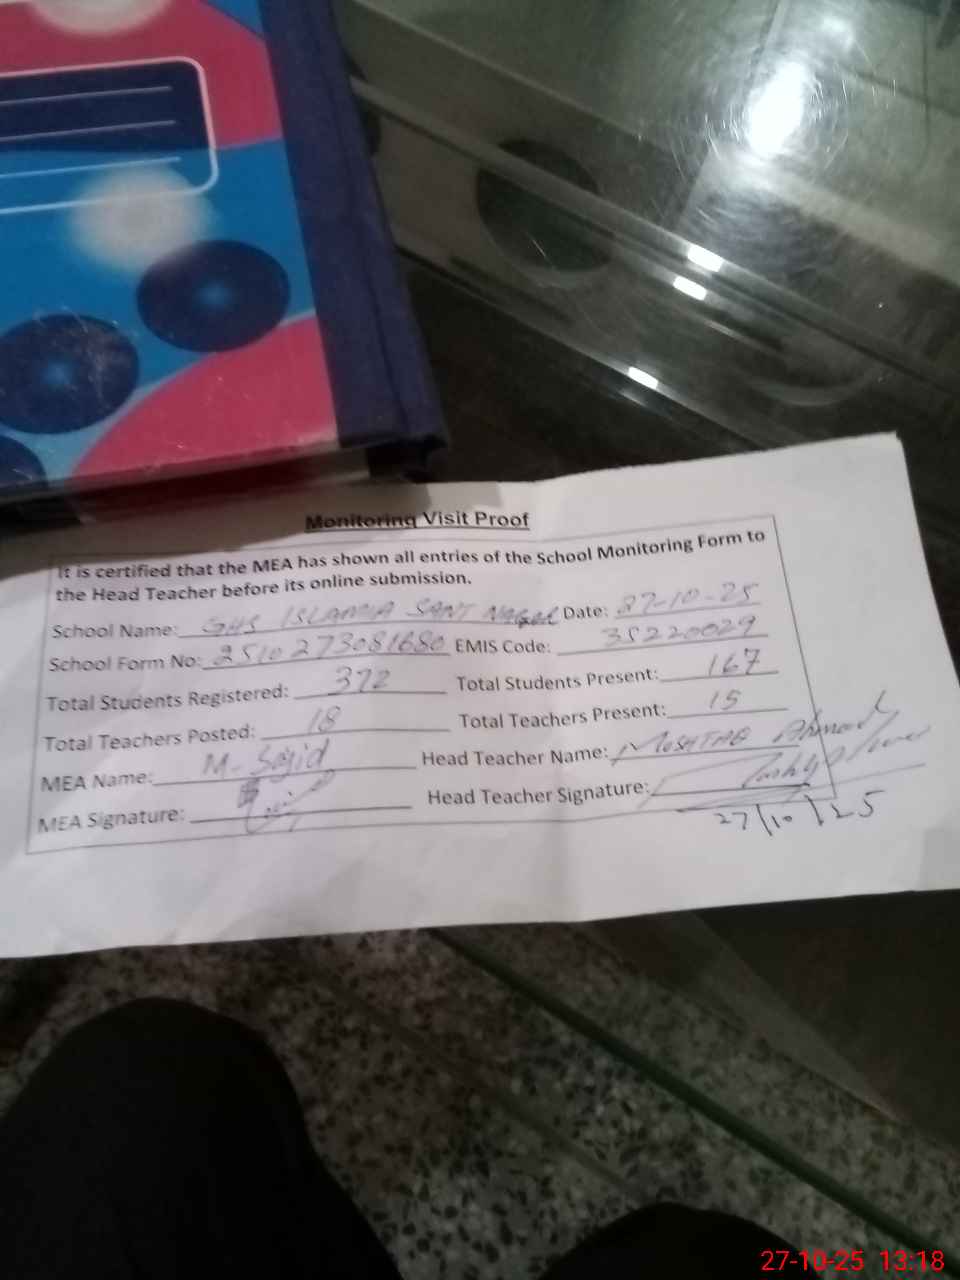 Monitoring Visit Proof
It is certified that the MEA has shown all entries of the School Monitoring Form to
the Head Teacher before its online submission.
School Name: GHS ISLAMIA SANT NAGAR Date: 27-10-25
School Form No: 2510273081680 EMIS Code: 35220029
Total Students Registered: 372 Total Students Present: 167
Total Teachers Posted: 18 Total Teachers Present: 15
MEA Name: M-Sajid Head Teacher Name: MUSHTAQ Ahmad
MEA Signature: Head Teacher Signature:
27/10/25
27-10-25 13:18